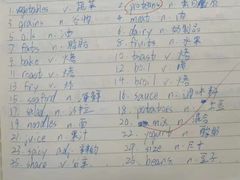 1. vegetables n. 蔬菜 2. proteins n. 蛋白质
3. grains n. 谷物 4. meat n. 肉
5. oils n. 油 6. dairy n. 奶制品
7. fats n. 脂肪 8. fruits n. 水果
9. bake v. 烤 10. toast v. 烤
11. roast v. 烤 12. boil v.
13. fry v. 炸 14. broil v. 烤
15. seafood n. 海鲜 16. sauce n. 调味料
17. salad n. 沙拉 18. potatoes n. 土豆
19. noodles n. 面 20. mix n. 混合
21. juice n. 果汁 22. yogurt n.
23. spicy adj. 24. size n. 尺寸
25. share v. 26. beans n. 豆子